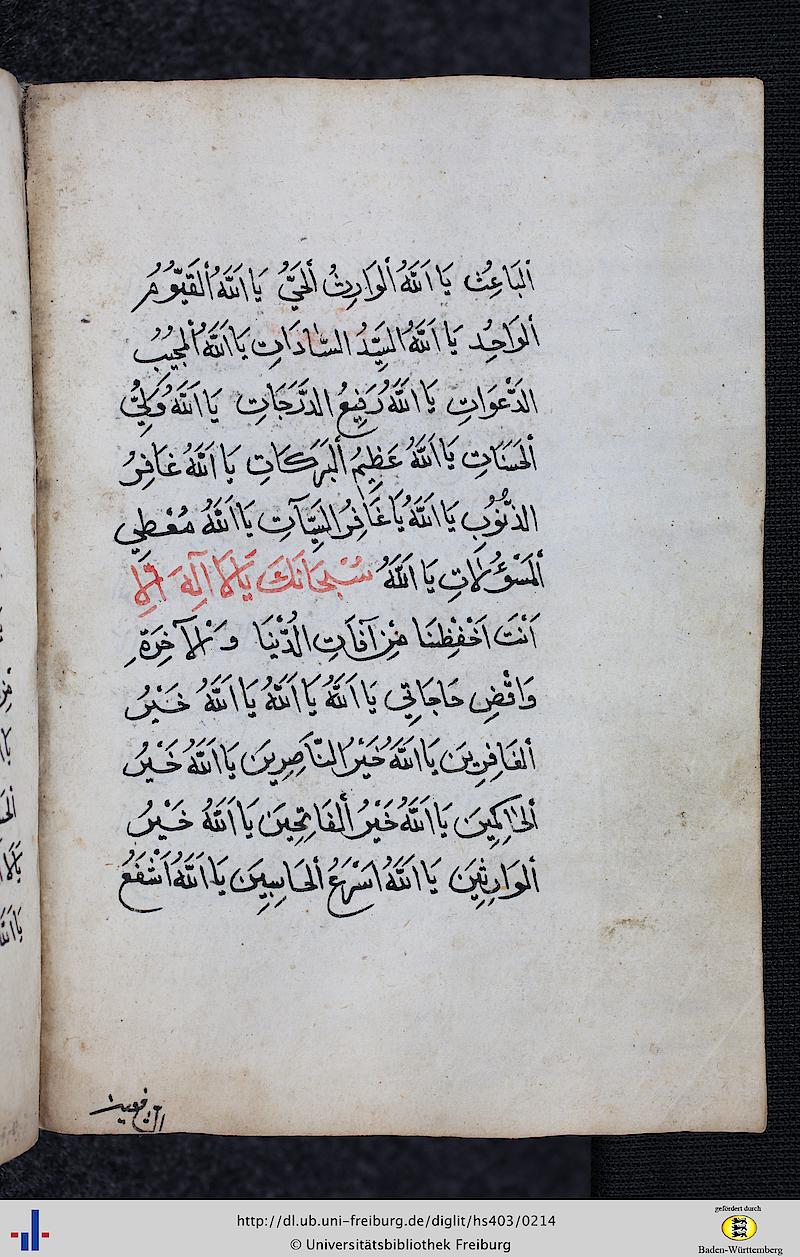 اَلْبَاعِثُ يَا اَللّٰهُ اَلْوَارِثُ اَلْحَيُّ يَا اَللّٰهُ اَلْقَيُّومُ
اَلْوَاحِدِ يَا اَللّٰهُ السَّيِّدُ السَّادَاتِ يَا اَللّٰهُ اَلْمُجِيْبُ
الدَّعْوَاتِ يَا اَللّٰهُ رَفِيعُ الدَّرَجَاتِ يَا اَللّٰهُ وَلِيُّ
اَلْحَسَنَاتِ يَا اَللّٰهُ عَظِيمُ اَلْبَرَكَاتِ يَا اَللّٰهُ غَافِرُ
الذُّنُوْبِ يَا اَللّٰهُ يَا غَافِرُ السَّيِّآتِ يَا اَللّٰهُ مُعْطِي
اَلْمَسْؤُلَاتِ يَا اَللّٰهُ سُبْحَانَكَ يَا لَا اِلٰهَ اِلَّا
اَنْتَ اَحْفِظْنَا مِنْ آفَاتِ الدُّنْيَا وَالْآخِرَةِ
وَاقْضِ حَاجَاتِي يَا اَللّٰهُ يَا اَللّٰهُ يَا اَللّٰهُ خَيْرُ
اَلْغَافِرِينَ يَا اَللّٰهُ خَيْرُ النَّاصِرِينَ يَا اَللّٰهُ خَيْرُ
اَلْحَاكِمِينَ يَا اَللّٰهُ خَيْرُ اَلْفَاتِحِينَ يَا اَللّٰهُ خَيْرُ
اَلْوَارِثِينَ يَا اَللّٰهُ اَسْرَعُ اَلْحَاسِبِينَ يَا اَللّٰهُ اَشْفَعُ
http://dl.ub.uni-freiburg.de/diglit/hs403/0214
© Universitätsbibliothek Freiburg
gefördert durch
Baden-Württemberg